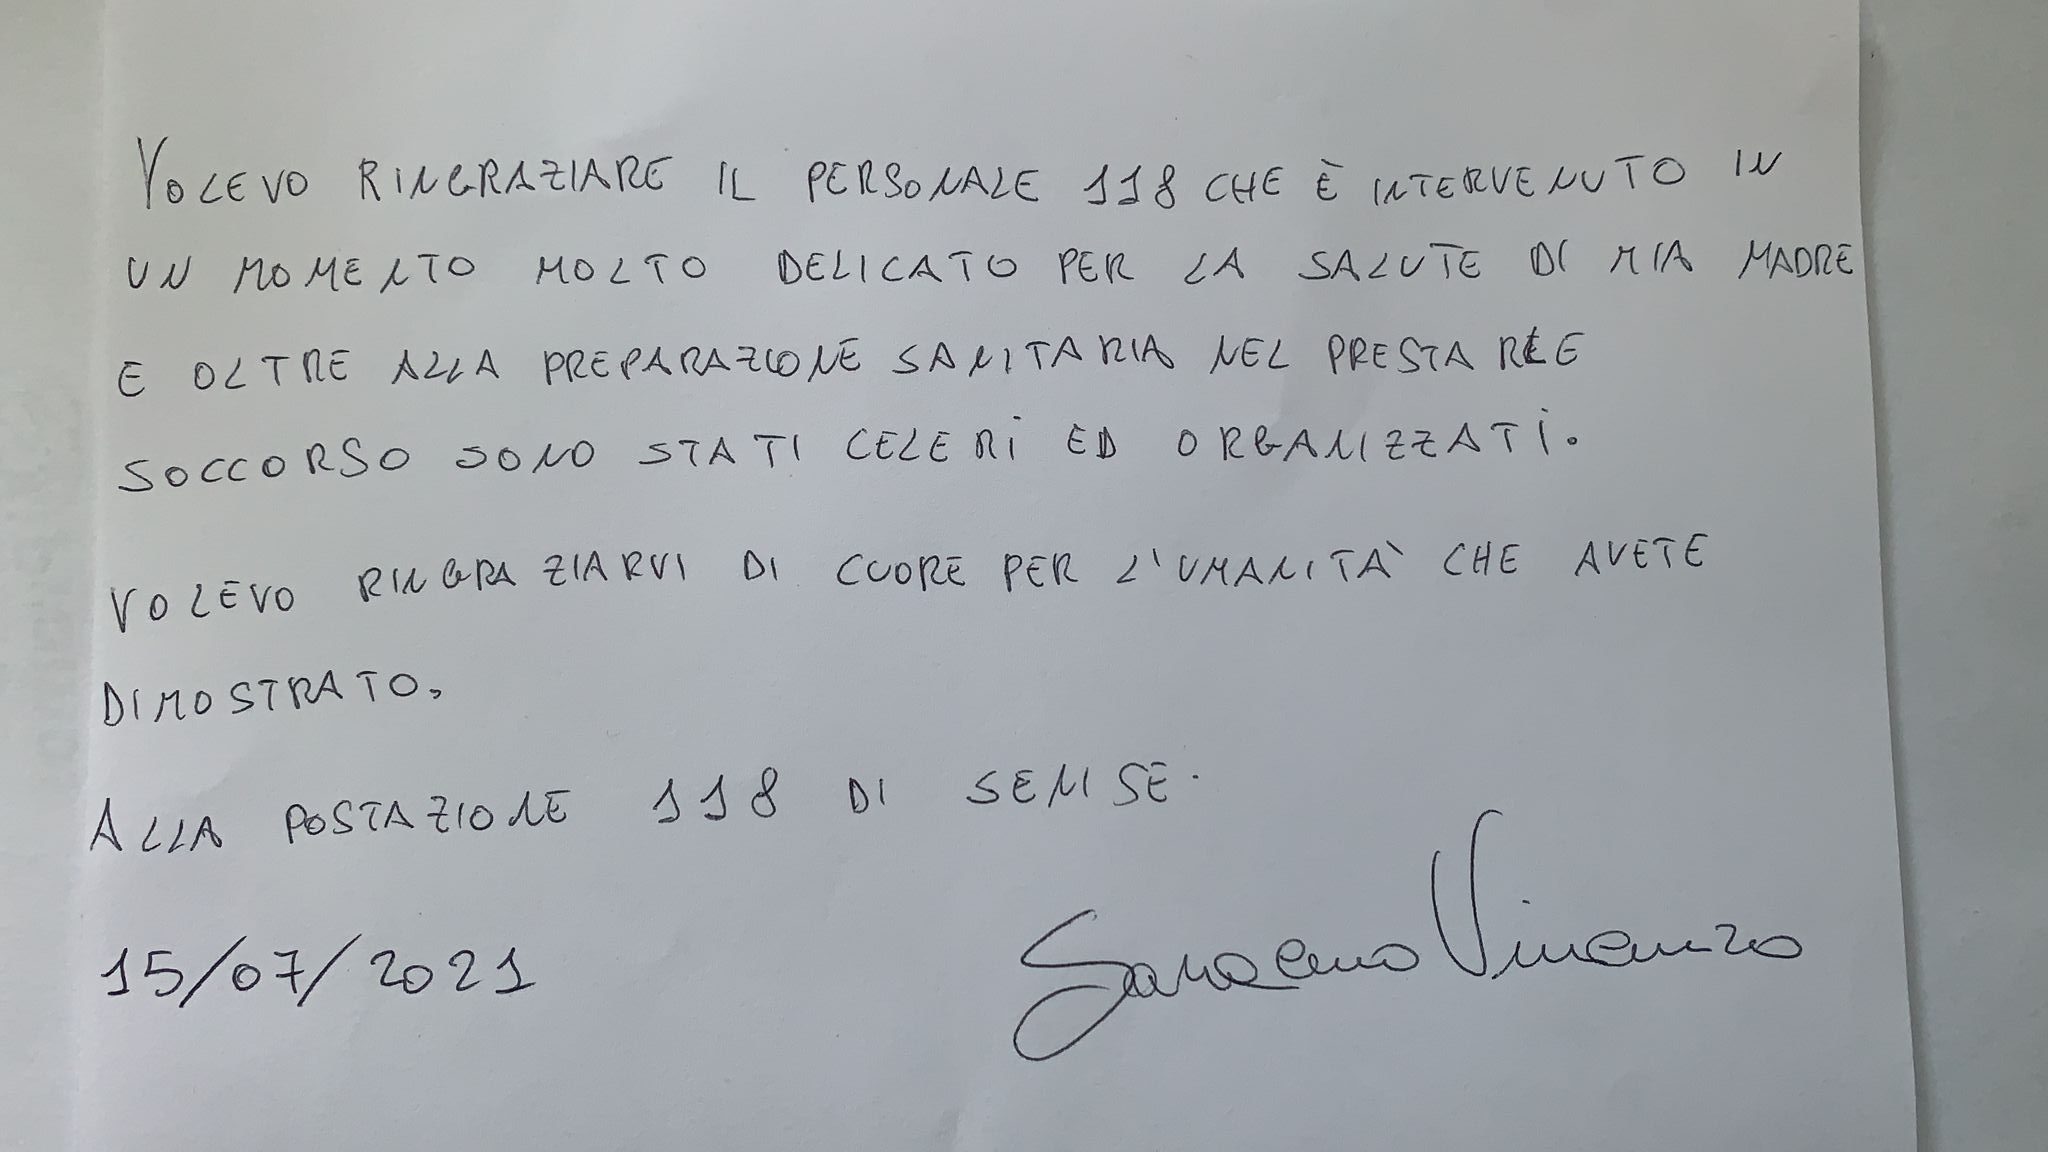 VOLEVO RINGRAZIARE IL PERSONALE 118 CHE È INTERVENUTO IN
UN MOMENTO MOLTO DELICATO PER LA SALUTE DI MIA MADRE
E OLTRE ALLA PREPARAZIONE SANITARIA NEL PRESTARLE
SOCCORSO SONO STATI CELERI ED ORGANIZZATI.
VOLEVO RINGRAZIARVI DI CUORE PER L'UMANITÀ CHE AVETE
DIMOSTRATO.
ALLA POSTAZIONE 118 DI SENISE.
15/07/2021 Saraceno Vincenzo